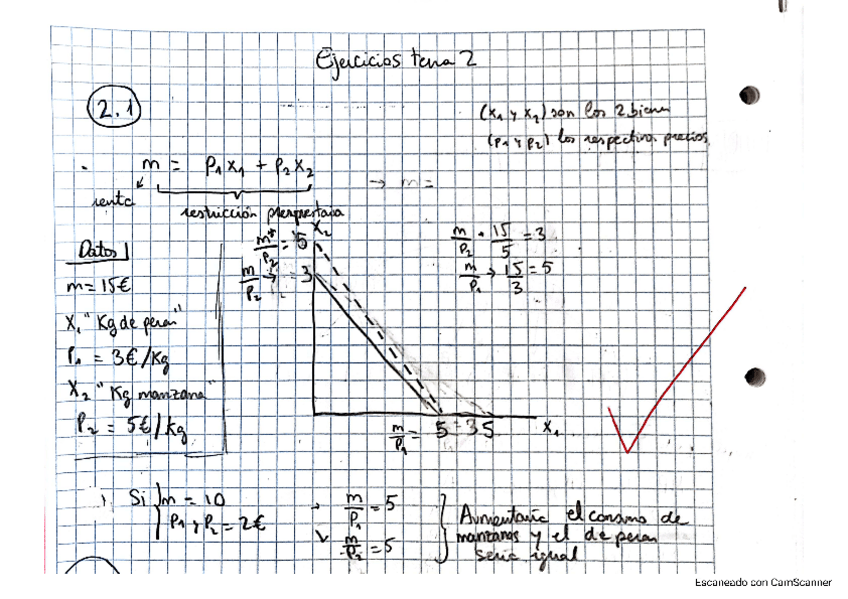 Ejercicios tema 2
2.1
(x₁ y x₂) son los 2 bienes
(p₁ y p₂) los respectivos precios
m = p₁x₁ + p₂x₂
→ m =
renta
restricción presupuestaria
Datos
m = 15€
x₁ "Kg de peras"
P₁ = 3€/Kg
x₂ "Kg manzana"
P₂ = 5€/kg
x₂
m*/p₂ = 5
m/p₂ → = 3
m/p₂ → 15/5 = 3
m/p₁ → 15/3 = 5
m/p₁ = 5 = 3 5
x₁
Si m = 10
P₁ y P₂ = 2€
→ m/p₁ = 5
y m/p₂ = 5
Aumentaría el consumo de
manzanas y el de peras
sería igual
Escaneado con CamScanner